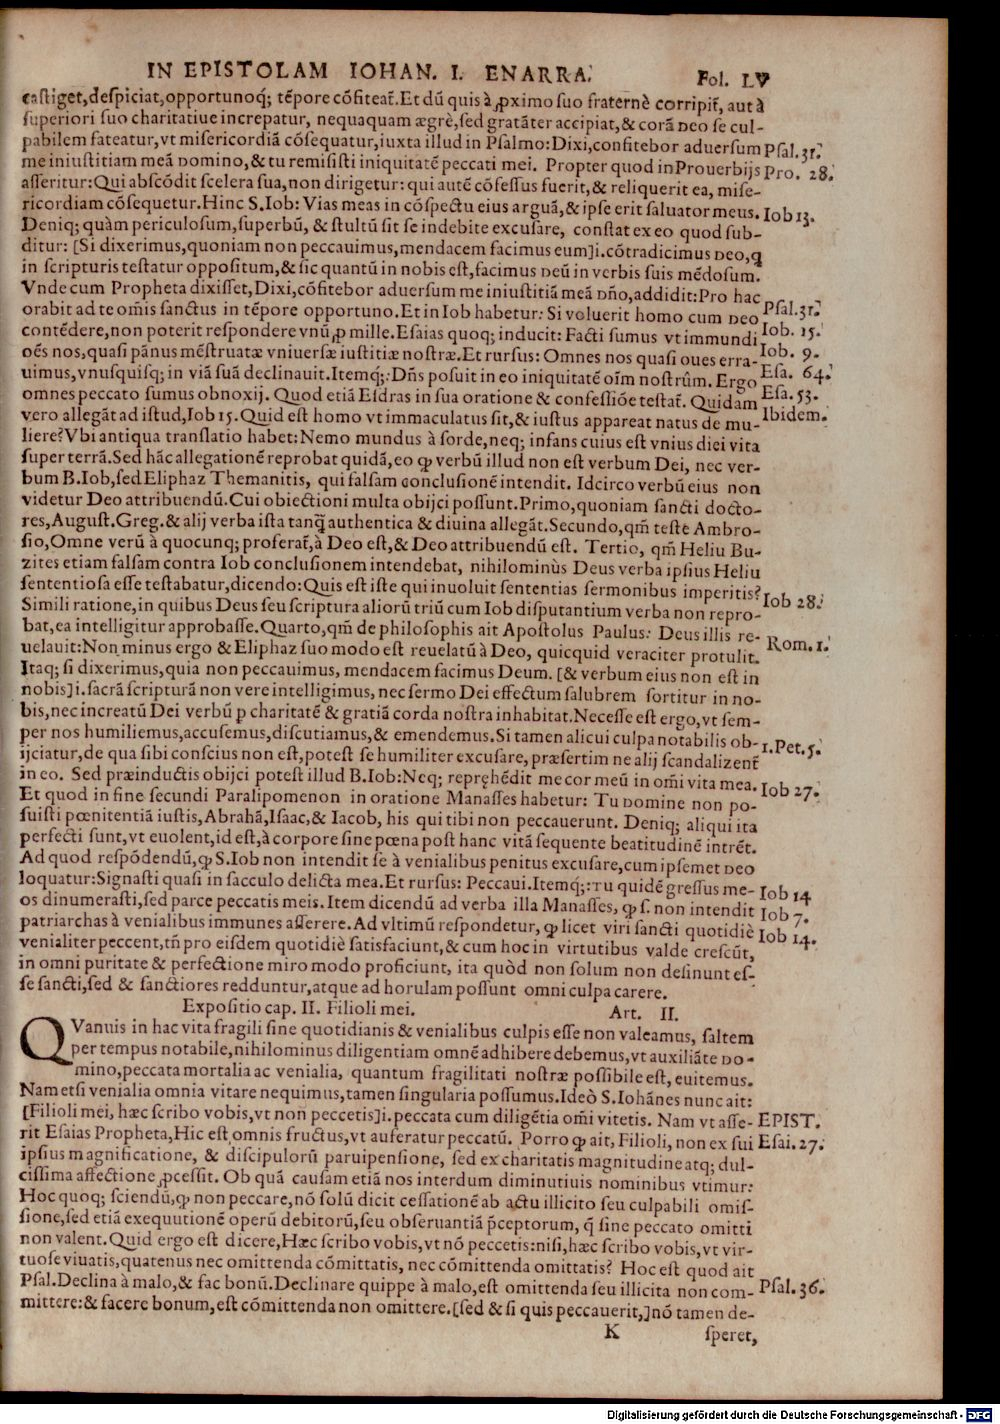 IN EPISTOLAM IOHAN. I. ENARRA. Fol. LV
castiget, despiciat, opportunoq; tēpore cōfiteat̄. Et dū quis à ꝓximo suo fraternè corripit̄, aut à
superiori suo charitatiue increpatur, nequaquam ægrè, sed gratāter accipiat, & corā DEO se cul-
pabilem fateatur, vt misericordiā cōsequatur, iuxta illud in Psalmo: Dixi, confitebor aduersum Psal. 31.
me iniustitiam meā DOMINO, & tu remisisti iniquitatē peccati mei. Propter quod in Prouerbijs Pro. 28.
asseritur: Qui abscōdit scelera sua, non dirigetur: qui autē cōfessus fuerit, & reliquerit ea, mise-
ricordiam cōsequetur. Hinc S. Iob: Vias meas in cōspectu eius arguā, & ipse erit saluator meus. Iob 13.
Deniq; quàm periculosum, superbū, & stultū sit se indebite excusare, constat ex eo quod sub-
ditur: [Si dixerimus, quoniam non peccauimus, mendacem facimus eum] i. cōtradicimus DEO, q̄
in scripturis testatur oppositum, & sic quantū in nobis est, facimus DEū in verbis suis mēdosum.
Vnde cum Propheta dixisset, Dixi, cōfitebor aduersum me iniustitiā meā DÑO, addidit: Pro hac
orabit ad te om̄is sanctus in tēpore opportuno. Et in Iob habetur: Si voluerit homo cum DEO Psal. 31.
contēdere, non poterit respondere vnū ꝓ mille. Esaias quoq; inducit: Facti sumus vt immundi Iob. 15.
oēs nos, quasi pānus mēstruatæ vniuersæ iustitiæ nostræ. Et rursus: Omnes nos quasi oues erra- Iob. 9.
uimus, vnusquisq; in viā suā declinauit. Itemq;: Dn̄s posuit in eo iniquitatē oīm nostrûm. Ergo Esa. 64.
omnes peccato sumus obnoxij. Quod etiā Esdras in sua oratione & confessiōe testat̄. Quidam Esa. 53.
vero allegāt ad istud, Iob 15. Quid est homo vt immaculatus sit, & iustus appareat natus de mu- Ibidem.
liere? Vbi antiqua translatio habet: Nemo mundus à sorde, neq; infans cuius est vnius diei vita
super terrā. Sed hāc allegationē reprobat quidā, eo ꝙ verbū illud non est verbum Dei, nec ver-
bum B. Iob, sed Eliphaz Themanitis, qui falsam conclusionē intendit. Idcirco verbū eius non
videtur Deo attribuendū. Cui obiectioni multa obijci possunt. Primo, quoniam sancti docto-
res, August. Greg. & alij verba ista tanq̄ authentica & diuina allegāt. Secundo, qm̄ teste Ambro-
sio, Omne verū à quocunq; proferat̄, à Deo est, & Deo attribuendū est. Tertio, qm̄ Heliu Bu-
zites etiam falsam contra Iob conclusionem intendebat, nihilominùs Deus verba ipsius Heliu
sententiosa esse testabatur, dicendo: Quis est iste qui inuoluit sententias sermonibus imperitis?
Simili ratione, in quibus Deus seu scriptura aliorū triū cum Iob disputantium verba non repro- Iob 28.
bat, ea intelligitur approbasse. Quarto, qm̄ de philosophis ait Apostolus Paulus: Deus illis re-
uelauit: Non minus ergo & Eliphaz suo modo est reuelatū à Deo, quicquid veraciter protulit. Rom. 1.
Itaq; si dixerimus, quia non peccauimus, mendacem facimus Deum. [& verbum eius non est in
nobis] i. sacrā scripturā non vere intelligimus, nec sermo Dei effectum salubrem sortitur in no-
bis, nec increatū Dei verbū p charitatē & gratiā corda nostra inhabitat. Necesse est ergo, vt sem-
per nos humiliemus, accusemus, discutiamus, & emendemus. Si tamen alicui culpa notabilis ob- 1. Pet. 5.
ijciatur, de qua sibi conscius non est, potest se humiliter excusare, præsertim ne alij scandalizent̄
in eo. Sed præinductis obijci potest illud B. Iob: Neq; repręhēdit me cor meū in om̄i vita mea. Iob 27.
Et quod in fine secundi Paralipomenon in oratione Manasses habetur: Tu DOMINE non po-
suisti pœnitentiā iustis, Abrahā, Isaac, & Iacob, his qui tibi non peccauerunt. Deniq; aliqui ita
perfecti sunt, vt euolent, id est, à corpore sine pœna post hanc vitā sequente beatitudinē intrēt.
Ad quod respōdendū, ꝙ S. Iob non intendit se à venialibus penitus excusare, cum ipsemet DEO
loquatur: Signasti quasi in sacculo delicta mea. Et rursus: Peccaui. Itemq;: TU quidē gressus me- Iob 14
os dinumerasti, sed parce peccatis meis. Item dicendū ad verba illa Manasses, ꝙ s. non intendit Iob 7.
patriarchas à venialibus immunes asserere. Ad vltimū respondetur, ꝙ licet viri sancti quotidiè Iob 14.
venialiter peccent, tn̄ pro eisdem quotidiè satisfaciunt, & cum hoc in virtutibus valde crescūt,
in omni puritate & perfectione miro modo proficiunt, ita quòd non solum non desinunt es-
se sancti, sed & sanctiores redduntur, atque ad horulam possunt omni culpa carere.
Expositio cap. II. Filioli mei. Art. II.
QVanuis in hac vita fragili sine quotidianis & venialibus culpis esse non valeamus, saltem
per tempus notabile, nihilominus diligentiam omnē adhibere debemus, vt auxiliāte DO-
mino, peccata mortalia ac venialia, quantum fragilitati nostræ possibile est, euitemus.
Nam etsi venialia omnia vitare nequimus, tamen singularia possumus. Ideò S. Iohānes nunc ait:
[Filioli mei, hæc scribo vobis, vt non peccetis] i. peccata cum diligētia om̄i vitetis. Nam vt asse- EPIST.
rit Esaias Propheta, Hic est omnis fructus, vt auferatur peccatū. Porro ꝙ ait, Filioli, non ex sui Esai. 27.
ipsius magnificatione, & discipulorū paruipensione, sed ex charitatis magnitudine atq; dul-
cissima affectione ꝓcessit. Ob quā causam etiā nos interdum diminutiuis nominibus vtimur:
Hoc quoq; sciendū, ꝙ non peccare, nō solū dicit cessationē ab actu illicito seu culpabili omis-
sione, sed etiā exequutionē operū debitorū, seu obseruantiā p̄ceptorum, q̄ sine peccato omitti
non valent. Quid ergo est dicere, Hæc scribo vobis, vt nō peccetis: nisi, hæc scribo vobis, vt vir-
tuose viuatis, quatenus nec omittenda cōmittatis, nec cōmittenda omittatis? Hoc est quod ait
Psal. Declina à malo, & fac bonū. Declinare quippe à malo, est omittenda seu illicita non com- Psal. 36.
mittere: & facere bonum, est cōmittenda non omittere. [sed & si quis peccauerit,] nō tamen de-
K speret,
Digitalisierung gefördert durch die Deutsche Forschungsgemeinschaft - DFG